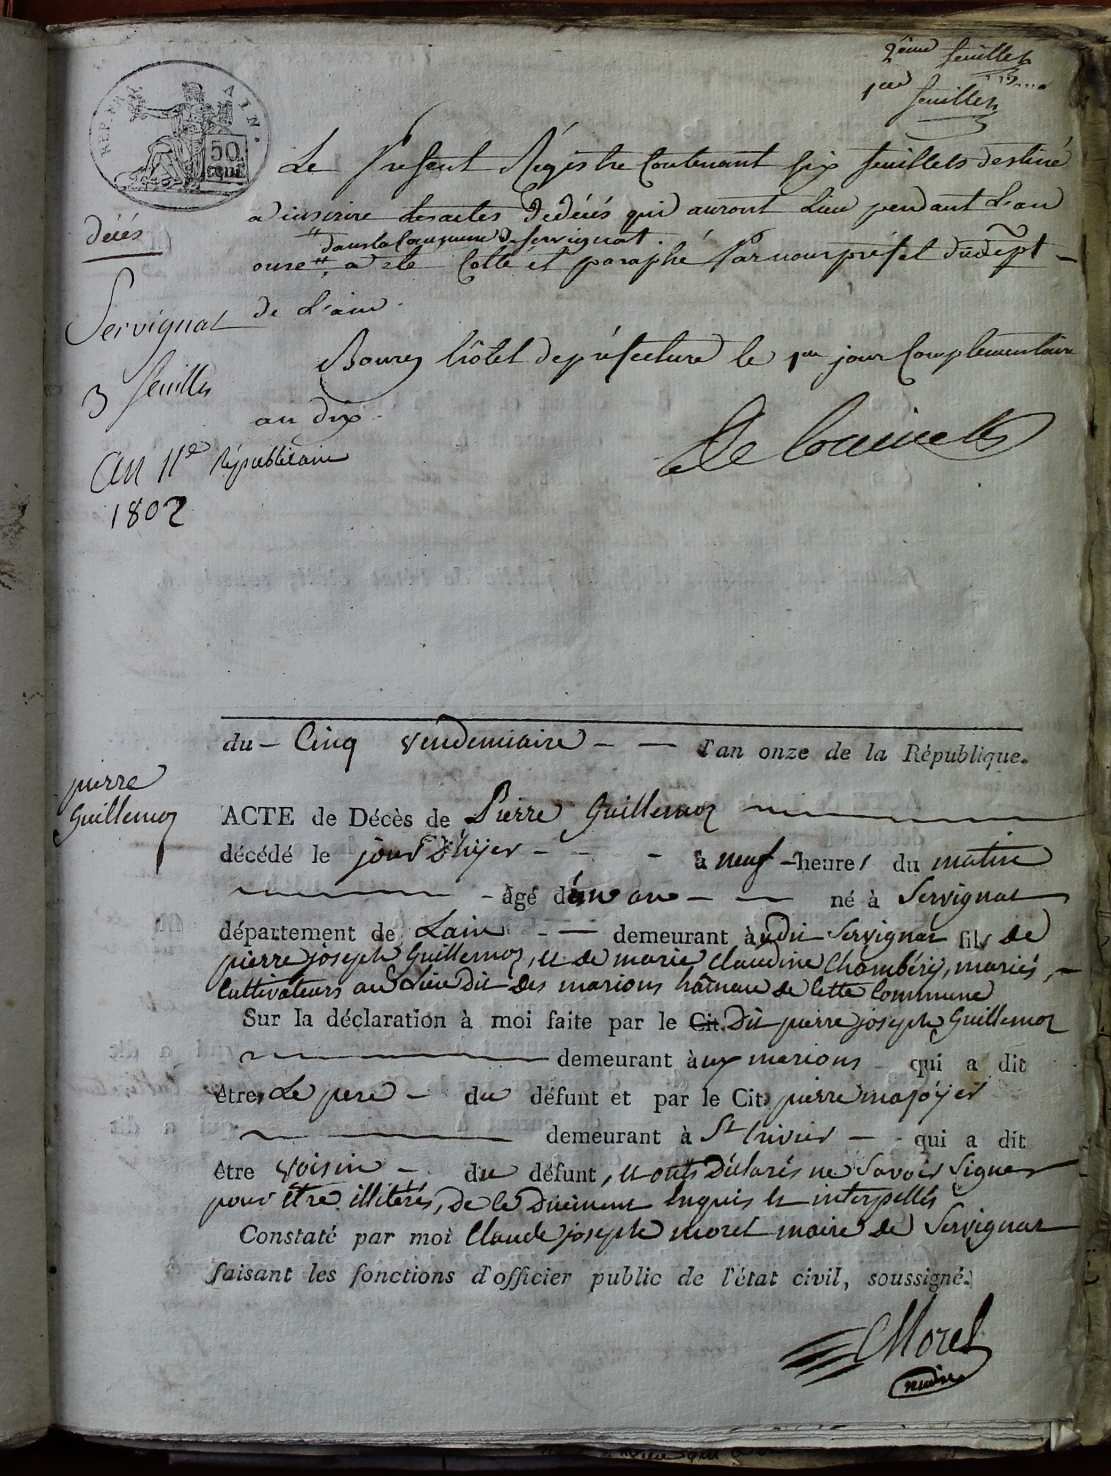 2eme feuillet
1er feuillet
REP. FRA. AIN.
50 cent
Le Present Régistre Contenant six feuillets destiné
décés
a inscrire les actes de décés qui auront Lieu pendant L'an
dans la Commune de Servignat.
onze a été Cotté et paraphé Par nous préfet du dépt
Servignat
de L'ain.
Bourg hôtel de préfecture le 1er jour Complementaire
3 feuilles
an dix.
An 11e Républicain
1802
du - Cinq vendemiaire - - l'an onze de la République.
pierre
Guillemoz
ACTE de Décès de Pierre Guillemoz
décédé le jour d'hyer - - - à neuf - heures du matin
- âgé d'un an - - né à Servignat
département de Lain - - demeurant audit Servignat fils de
pierre joseph Guillemoz, et de marie Claudine Chambéry, mariés, -
Cultivateurs au Lieu dit des marions hâmeau de Cette Commune
Sur la déclaration à moi faite par le Cit. Dit pierre joseph Guillemoz
demeurant aux marions qui a dit
être Le pere - du défunt et par le Cit. pierre majoyer
demeurant à St trivier - - qui a dit
être voisin - du défunt, et onts déclarés ne Savoir Signer
pour être illitérés, de ce Duement enquis et interpellés
Constaté par moi Claude joseph morel maire de Servignat
faisant les fonctions d'officier public de l'état civil, soussigné.
CMorel
maire